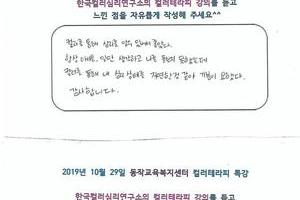 한국컬러심리연구소의 컬러테라피 강의를 듣고
느낀 점을 자유롭게 작성해 주세요^^
컬러를 통해 심리를 알게 되어서 좋았다.
항상 일만 생각하고 나를 돌보지 못했는데
컬러를 통해 내 심리상태를 직면한것 같아 기분이 묘하다.
감사합니다.
2019년 10월 29일 동작교육복지센터 컬러테라피 특강
한국컬러심리연구소의 컬러테라피 강의를 듣고